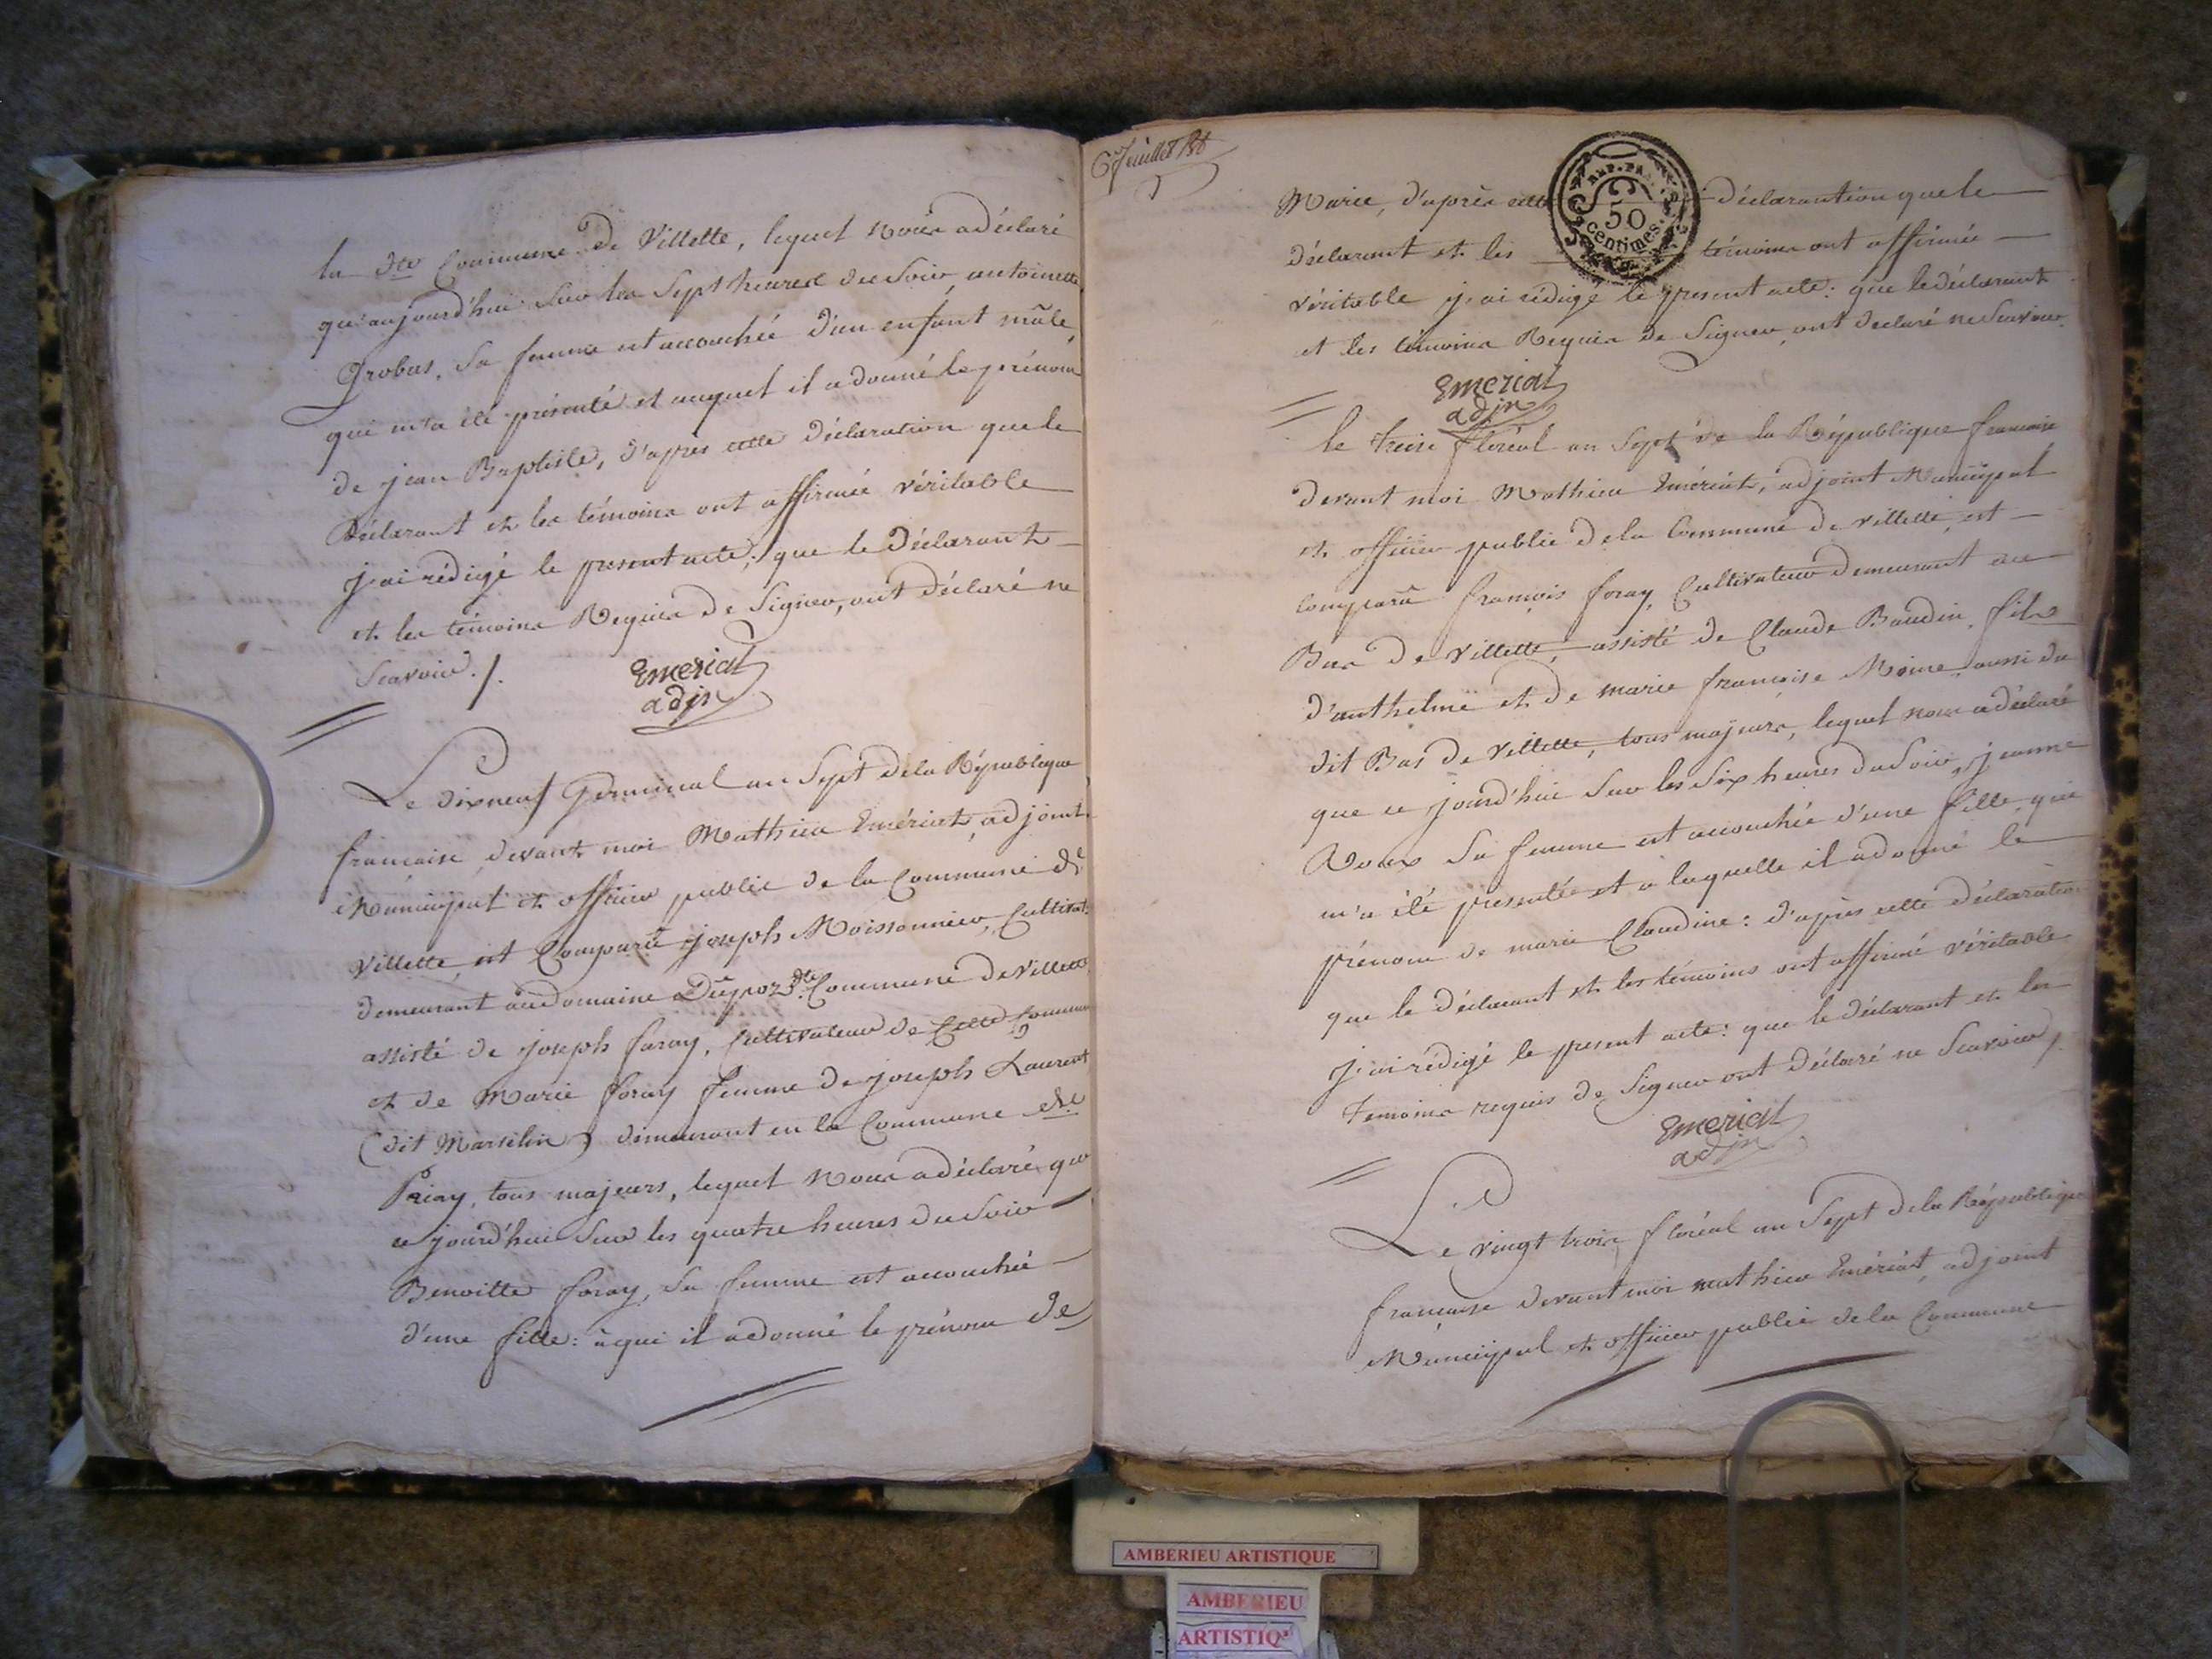 la dte Commune de Villette, lequel nous a déclaré
qu'aujourd'hui sur les sept heures du soir, antoinette
Grobas, sa femme est accouchée d'un enfant mâle
qui m'a été présenté et auquel il a donné le prénom
de jean Baptiste, d'après cette déclaration que le
déclarant et les témoins ont affirmée véritable
j'ai rédigé le present acte; que le déclarant
et les témoins Requis de Signer, ont déclaré ne
Scavoir ./.
Emeriat
adjn
Le dixneuf Germinal an Sept de la République
francaise, devant moi Mathieu Emériat, adjoint
Municipal et officier public de la Commune de
Villette, est Comparû joseph Moissonnier, Cultivat.
demeurant au domaine Dupoz dte Commune de Villette,
assisté de joseph foray, Cultivateur de Cette Commune
et de Marie foray femme de joseph Laurent
(dit Marselin) demeurant en la Commune de
Priay, tous majeurs, lequel nous a déclaré que
ce jourd'hui sur les quatre heures du Soir
Benoitte foray, sa femme est accouchée
d'une fille: à qui il a donné le prénom de
6e feuillet
Marie, d'après cette déclarantion que le
REP. FRA.
50
centimes.
déclarant et les témoins ont affirmée
véritable j'ai rédigé le present acte: que le déclarant
et les témoins Requis de Signer, ont déclaré ne Scavoir.
Emeriat
adjn
le treise floréal an Sept de la République francaise
devant moi Mathieu Emériat, adjoint Municipal
et officier public de la Commune de villette, est
comparû françois foray, Cultivateur demeurant au
Bas de villette, assisté de Claude Baudin, fils
d'anthelme et de marie francoise Moine, aussi du
dit Bas de Villette, tous majeurs, lequel nous a déclaré
que ce jourd'hui sur les Six heures du Soir, jeanne
Roux sa femme est accouchée d'une fille, qui
m'a été presentée et a laquelle il a donné le
prénom de marie Claudine: d'après cette déclaration
que le déclarant et les témoins ont affirmé véritable
j'ai rédigé le present acte: que le déclarant et les
temoins requis de Signer ont déclaré ne Scavoir /.
Emeriat
adjn
Le vingt trois floréal an Sept de la République
francaise devant moi mathieu Emériat, adjoint
Municipal et officier public de la Commune
AMBERIEU ARTISTIQUE
AMBERIEU
ARTISTIQ